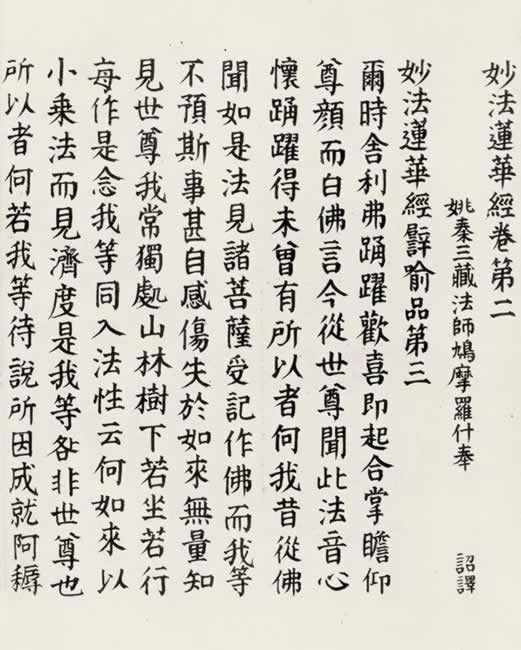 妙法蓮華經卷第二
姚秦三藏法師鳩摩羅什奉 詔譯
妙法蓮華經譬喻品第三
爾時舍利弗踊躍歡喜即起合掌瞻仰
尊顏而白佛言今從世尊聞此法音心
懷踊躍得未曾有所以者何我昔從佛
聞如是法見諸菩薩受記作佛而我等
不預斯事甚自感傷失於如來無量知
見世尊我常獨處山林樹下若坐若行
每作是念我等同入法性云何如來以
小乘法而見濟度是我等咎非世尊也
所以者何若我等待說所因成就阿耨